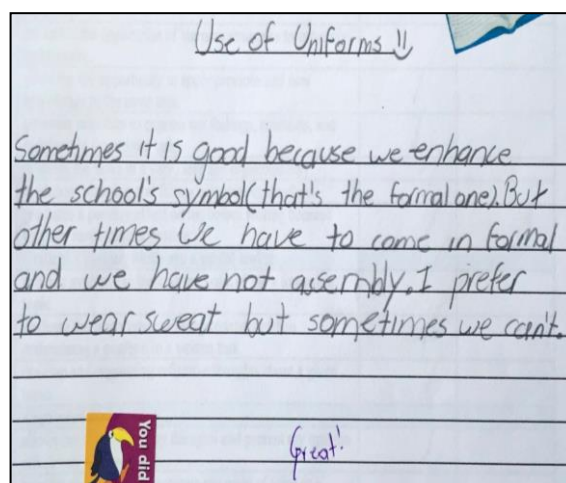 Use of Uniforms
Sometimes it is good because we enhance
the school's symbol(that's the formal one).But
other times we have to come in formal
and we have not asembly.I prefer
to wear sweat but sometimes we can't.
Great!
You did